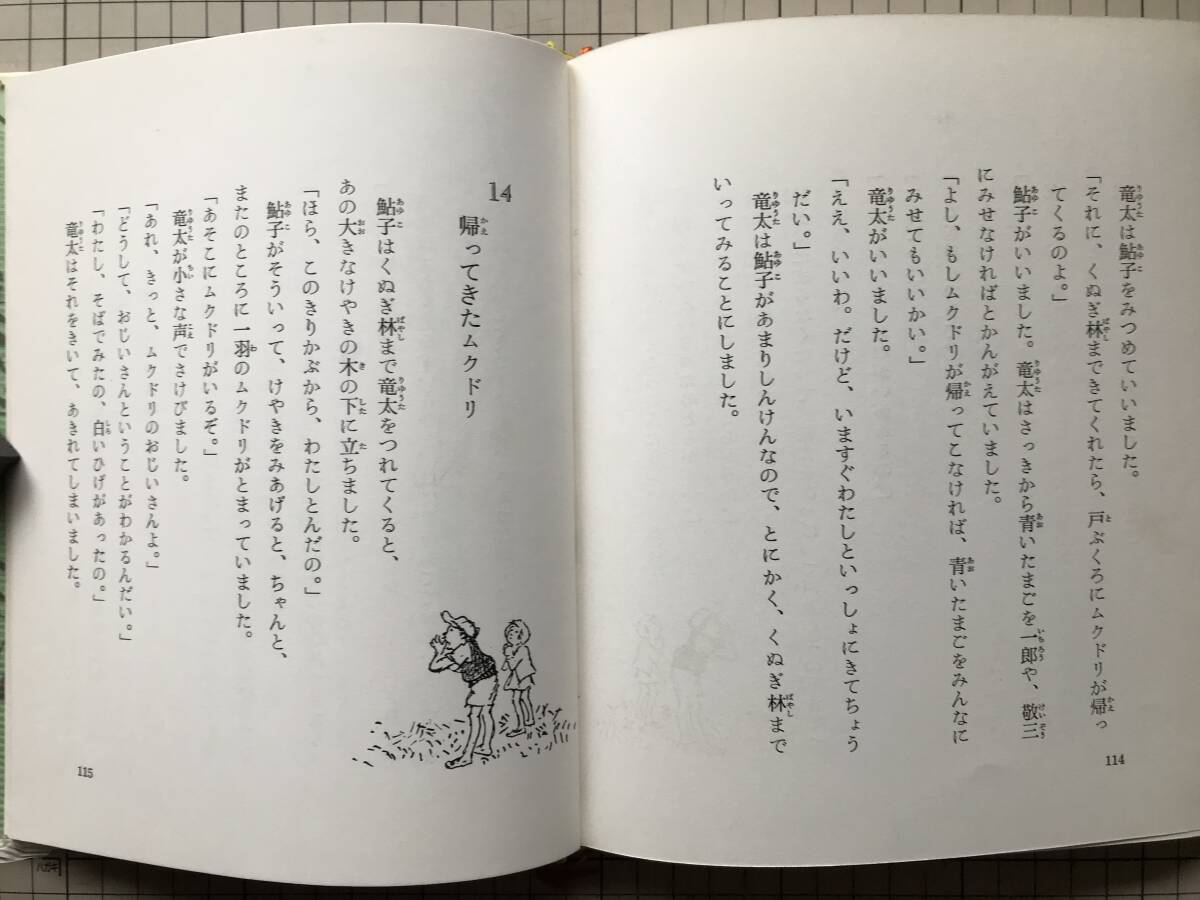 竜太は鮎子をみつめていいました。
「それに、くぬぎ林まできてくれたら、戸ぶくろにムクドリが帰っ
てくるのよ。」
鮎子がいいました。竜太はさっきから青いたまごを一郎や、敬三
にみせなければとかんがえていました。
「よし、もしムクドリが帰ってこなければ、青いたまごをみんなに
みせてもいいかい。」
竜太がいいました。
「ええ、いいわ。だけど、いますぐわたしといっしょにきてちょう
だい。」
竜太は鮎子があまりしんけんなので、とにかく、くぬぎ林まで
いってみることにしました。
114
14 帰ってきたムクドリ
鮎子はくぬぎ林まで竜太をつれてくると、
あの大きなけやきの木の下に立ちました。
「ほら、このきりかぶから、わたしとんだの。」
鮎子がそういって、けやきをみあげると、ちゃんと、
またのところに一羽のムクドリがとまっていました。
「あそこにムクドリがいるぞ。」
竜太が小さな声でさけびました。
「あれ、きっと、ムクドリのおじいさんよ。」
「どうして、おじいさんということがわかるんだい。」
「わたし、そばでみたの、白いひげがあったの。」
竜太はそれをきいて、あきれてしまいました。
115